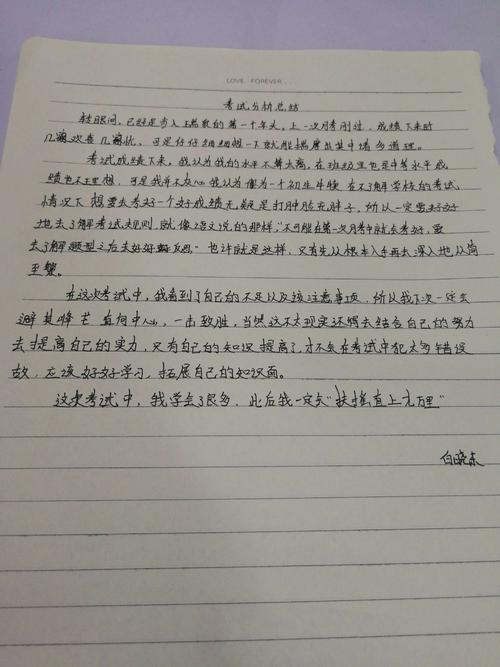 LOVE FOREVER...
考试分析总结
转眼间,已经是步入瑞敏的第一个年头。上一次月考刚过,成绩下来时
几家欢喜几家忧。可是仔仔细细想一下就能揭露出其中诸多道理。
考试成绩下来,我认为我的水平不算太高,在班级里也是中等水平成
绩也不理想,可是我并不灰心我认为像为一个初生牛犊在不了解学校的考试
情况下想要去考好一个好成绩无疑是打肿脸充胖子,所以一定要好好
地去了解考试规则,就像语文说的那样,"不可能在第一次月考中就去考好,要
去了解题型之后去好好反思"也许就是这样,只有先从根本入手再去深入地,从简
至繁。
在这次考试中,我看到了自己的不足以及该注意事项,所以我下次一定去
避其锋芒直向中心,一击致胜,当然这不太现实还得去结合自己的努力
去提高自己的实力,只有自己的知识提高了,才不会在考试中犯太多错误
故,应该好好学习,拓展自己的知识面。
这次考试中,我学会了很多,此后我一定会"扶摇直上九万里"
白晓东